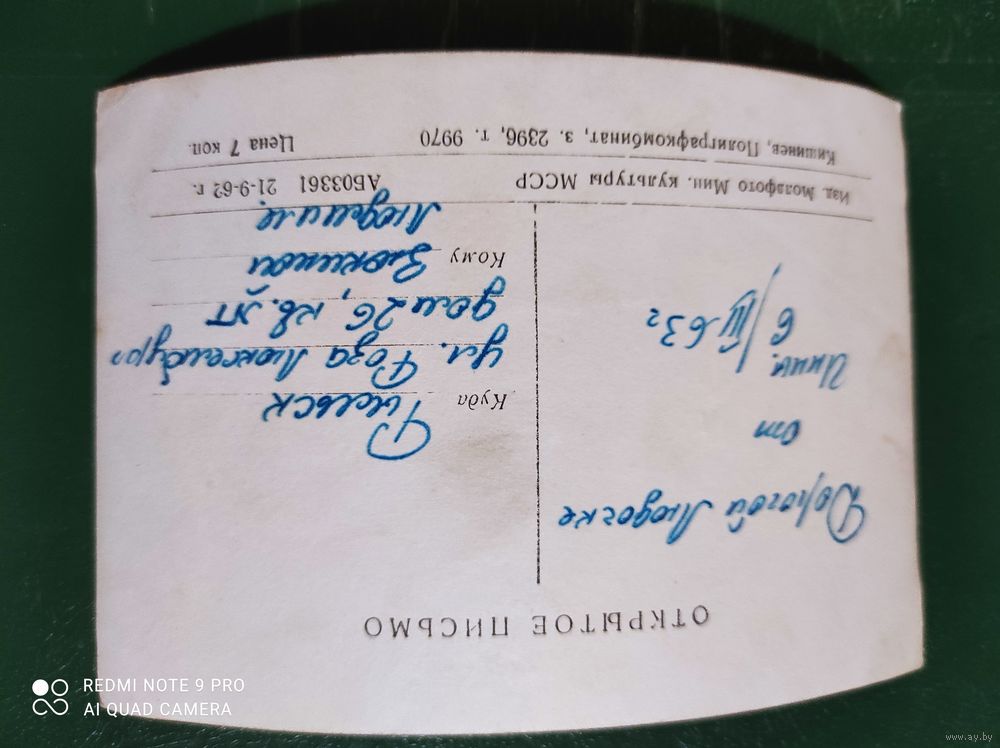 ОТКРЫТОЕ ПИСЬМО
Дорогой Людочке
от
Инны.
6/III-63 г
Куда
Рыльск
ул. Роза Люксембург
дом 26, кв.
Кому
Людмиле
Изд. Молдфото Мин. культуры МССР АБ03361 21-9-62 г.
Кишинев, Полиграфкомбинат, з. 2396, т. 9970 Цена 7 коп.
REDMI NOTE 9 PRO
AI QUAD CAMERA
www.ay.by